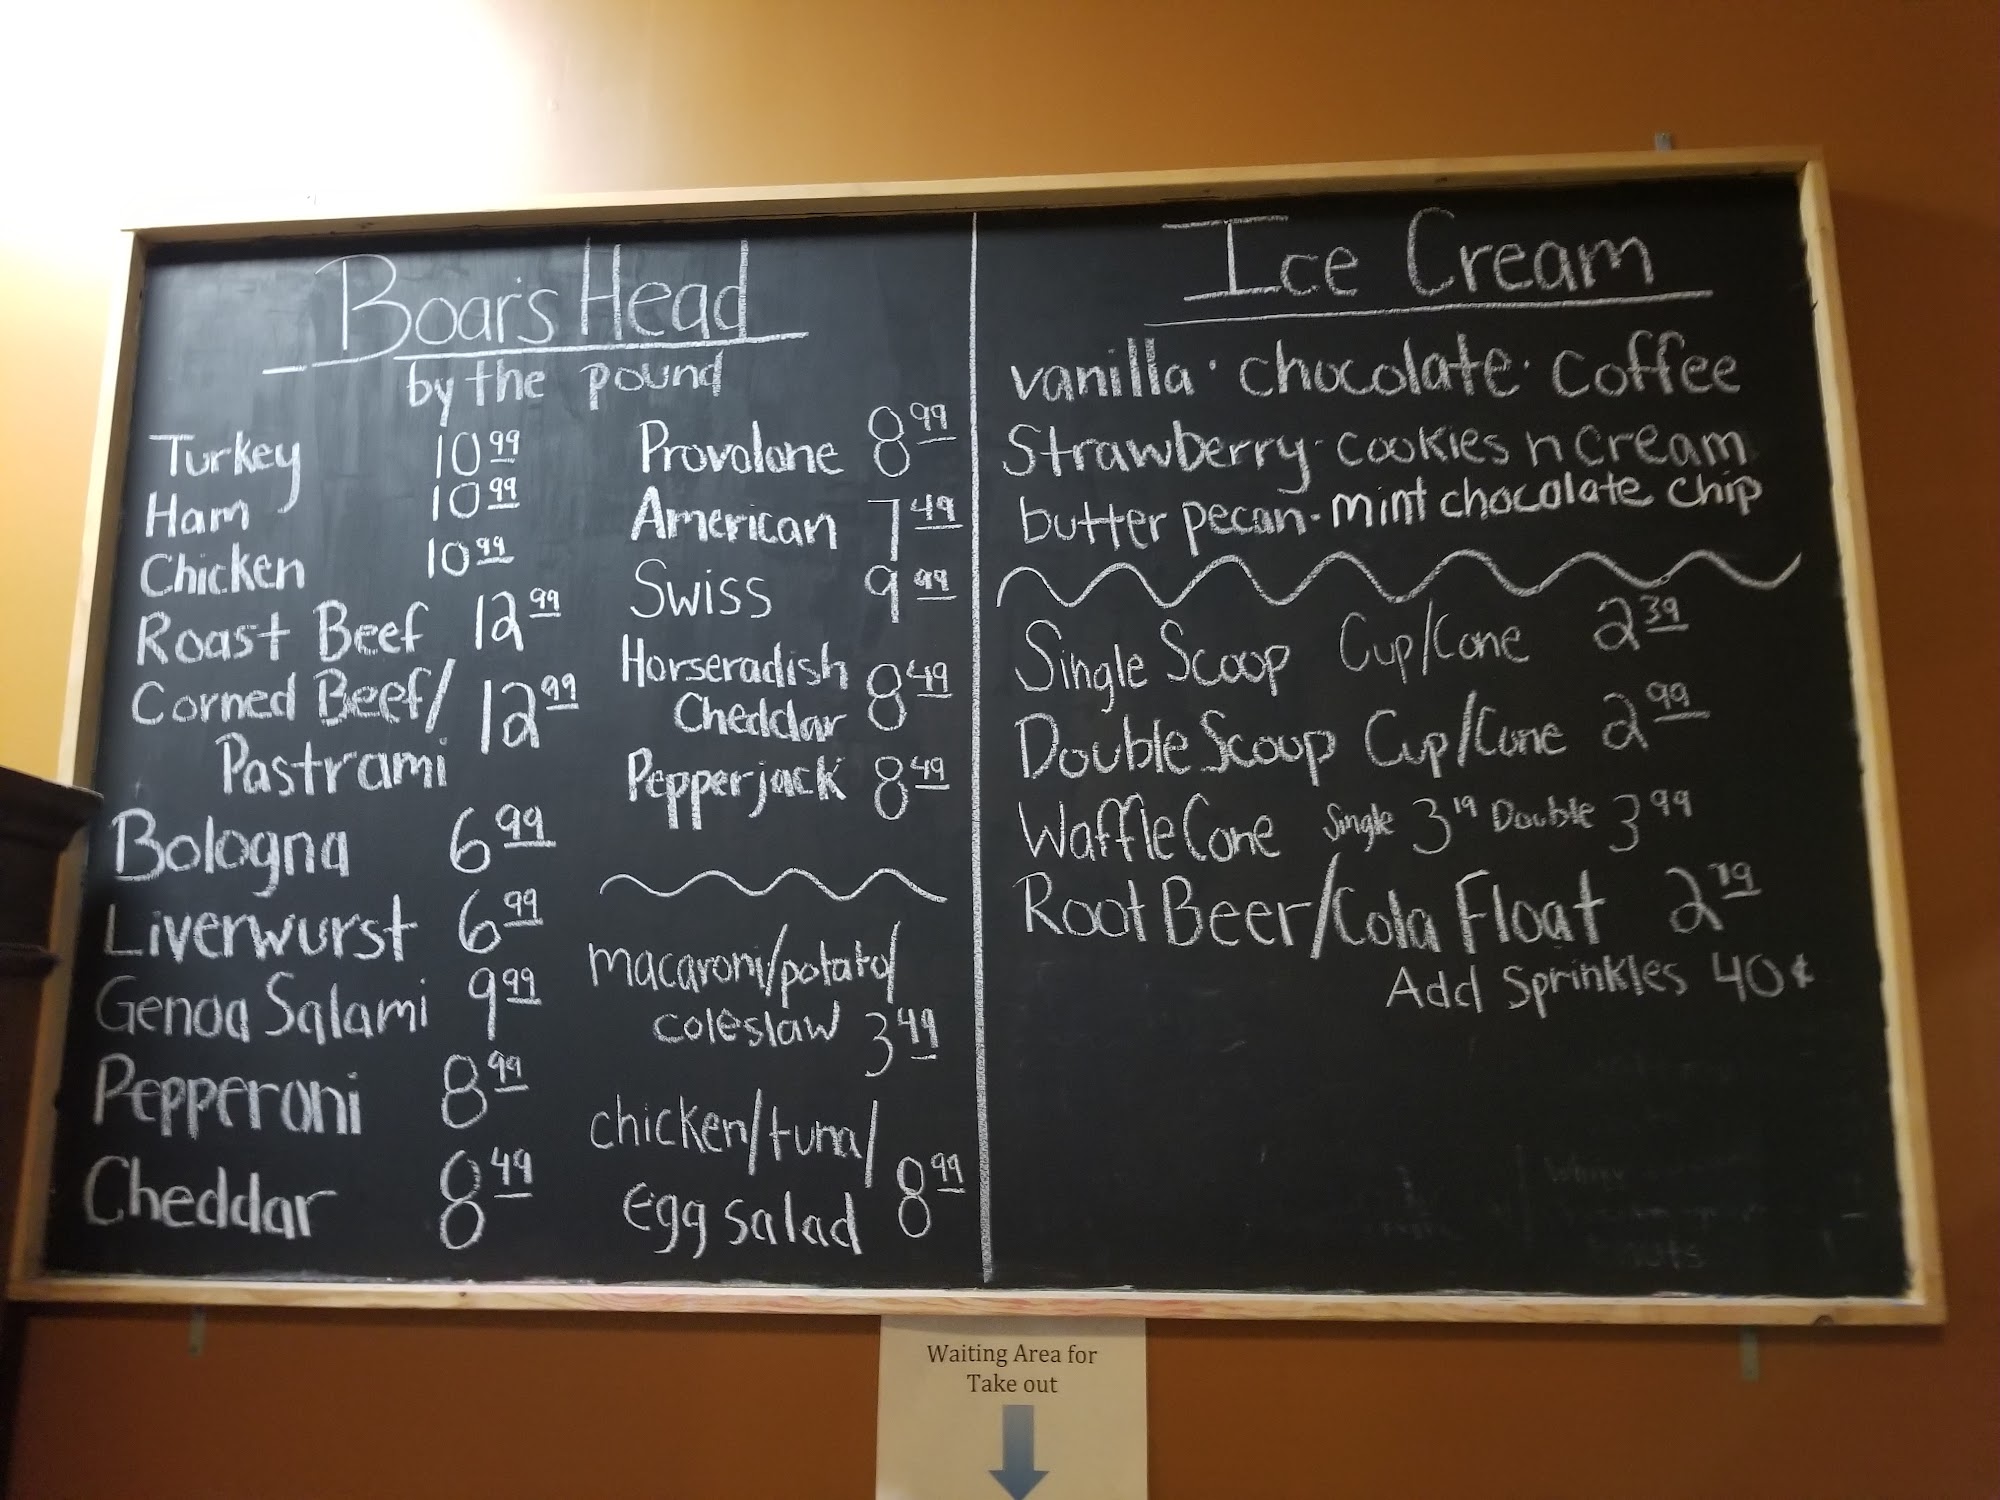 Boar's Head
by the pound
Turkey 10.99
Ham 10.99
Chicken 10.99
Roast Beef 12.99
Corned Beef/
Pastrami 12.99
Bologna 6.99
Liverwurst 6.99
Genoa Salami 9.99
Pepperoni 8.99
Cheddar 8.49
Provolone 8.99
American 7.49
Swiss 9.99
Horseradish
Cheddar 8.49
Pepperjack 8.49
macaroni/potato/
coleslaw 3.49
chicken/tuna/
egg salad 8.99
Ice Cream
vanilla · chocolate · coffee
Strawberry · cookies n cream
butter pecan - mint chocolate chip
Single Scoop Cup/Cone 2.39
Double Scoop Cup/Cone 2.99
Waffle Cone Single 3.19 Double 3.99
Root Beer/Cola Float 2.79
Add Sprinkles 40¢
Waiting Area for
Take out